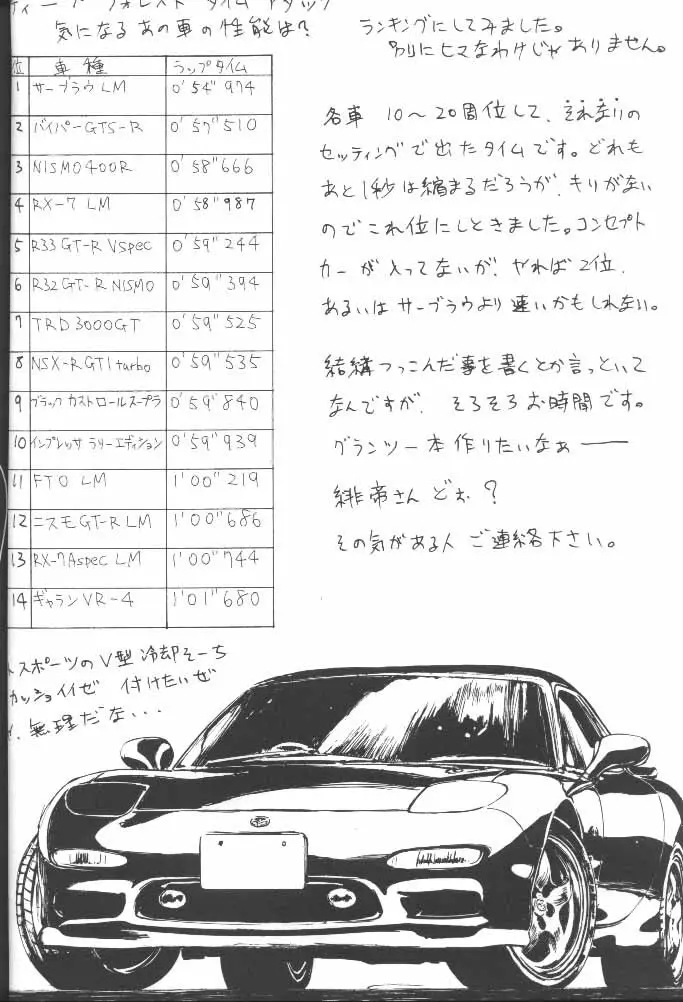 ディープフォレスト タイムアタック
気になるあの車の性能は?
ランキングにしてみました。
別にヒマなわけじゃありません。
位 車種 ラップタイム
1 サーブラウLM 0'54"974
2 バイパーGTS-R 0'57"510
3 NISMO400R 0'58"666
4 RX-7 LM 0'58"987
5 R33GT-R VSpec 0'59"244
6 R32GT-R NISMO 0'59"394
7 TRD3000GT 0'59"525
8 NSX-R GT1 turbo 0'59"535
9 ブラックカストロールスープラ 0'59"840
10 インプレッサ ラリーエディション 0'59"939
11 FTO LM 1'00"219
12 ニスモGT-R LM 1'00"686
13 RX-7 Aspec LM 1'00"744
14 ギャランVR-4 1'01"680
各車 10〜20周位して、それなりの
セッティングで出たタイムです。どれも
あと1秒は縮まるだろうが、キリがない
のでこれ位にしときました。コンセプト
カーが入ってないが、やれば2位、
あるいはサーブラウより速いかもしれない。
結構つっこんだ事を書くとか言っといて
なんですが、そろそろお時間です。
グランツー本作りたいなぁー
緋帝さんどぉ?
その気がある人ご連絡下さい。
スポーツのV型冷却そーち
カッショイイゼ 付けたいぜ
無理だな...